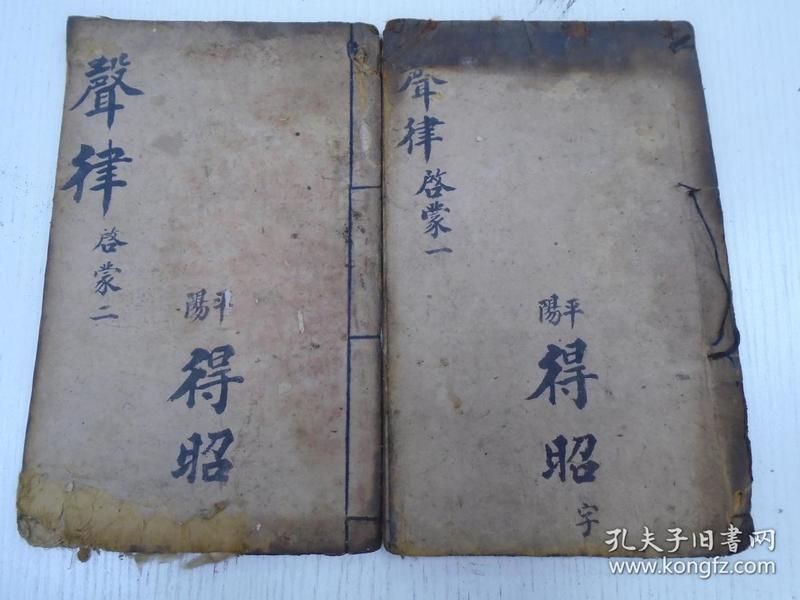 聲律啓蒙二
平陽
得昭
聲律啓蒙一
平陽
得昭字
孔夫子旧書网
www.kongfz.com